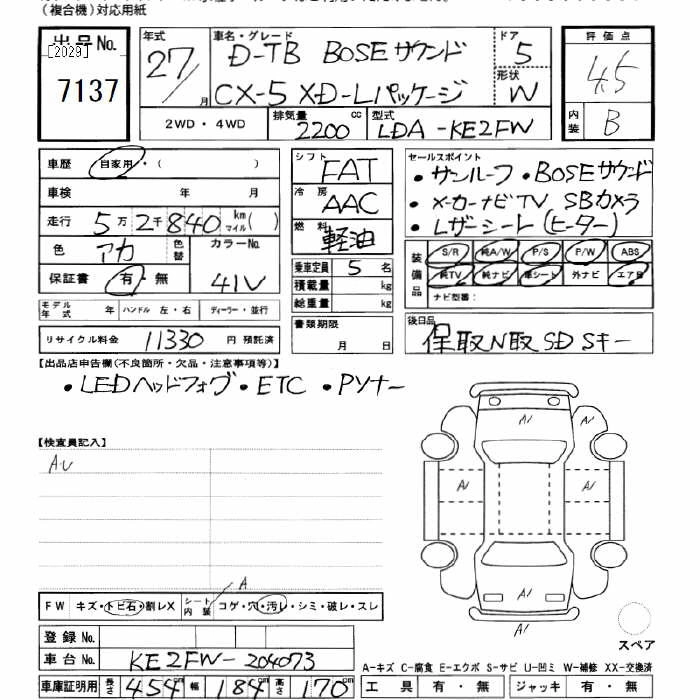 (複合機)対応用紙
出品No.
[2029]
7137
年式
27/月
車名・グレード
D-TB BOSEサウンド
CX-5 XD-Lパッケージ
ドア
5
形状
W
2WD・4WD
排気量
2200 cc
型式
LDA-KE2FW
評価点
4.5
内装
B
車歴 自家用・( )
車検 年 月
走行 5万2千840 km マイル( )
色 アカ 色替 カラーNo.
41V
保証書 有・無
モデル年式 年 ハンドル 左・右 ディーラー・並行
リサイクル料金 11330 円 預託済
シフト FAT
冷房 AAC
燃料 軽油
乗車定員 5 名
積載量 kg
総重量 kg
書類期限
月 日
セールスポイント
・サンルーフ ・BOSEサウンド
・メーカーナビTV SBカメラ
・レザーシート(ヒーター)
装備品 S/R 純A/W P/S P/W ABS
純TV 純ナビ 革シート 外ナビ エアB
ナビ型番:
後日品
保取N取SDSキー
【出品店申告欄(不良箇所・欠品・注意事項等)】
・LEDヘッドフォグ・ETC ・Pソナー
【検査員記入】
AU
A
FW キズ・トビ石・割レX シート内装 コゲ・穴・汚レ・シミ・破レ・スレ
登録No.
車台No. KE2FW-204073
車庫証明用 長さ 454 cm 幅 184 cm 高さ 170 cm
A1
A1
A1
A1
A1
A1
スペア
A-キズ C-腐食 E-エクボ S-サビ U-凹ミ W-補修 XX-交換済
工具 有・無 ジャッキ 有・無